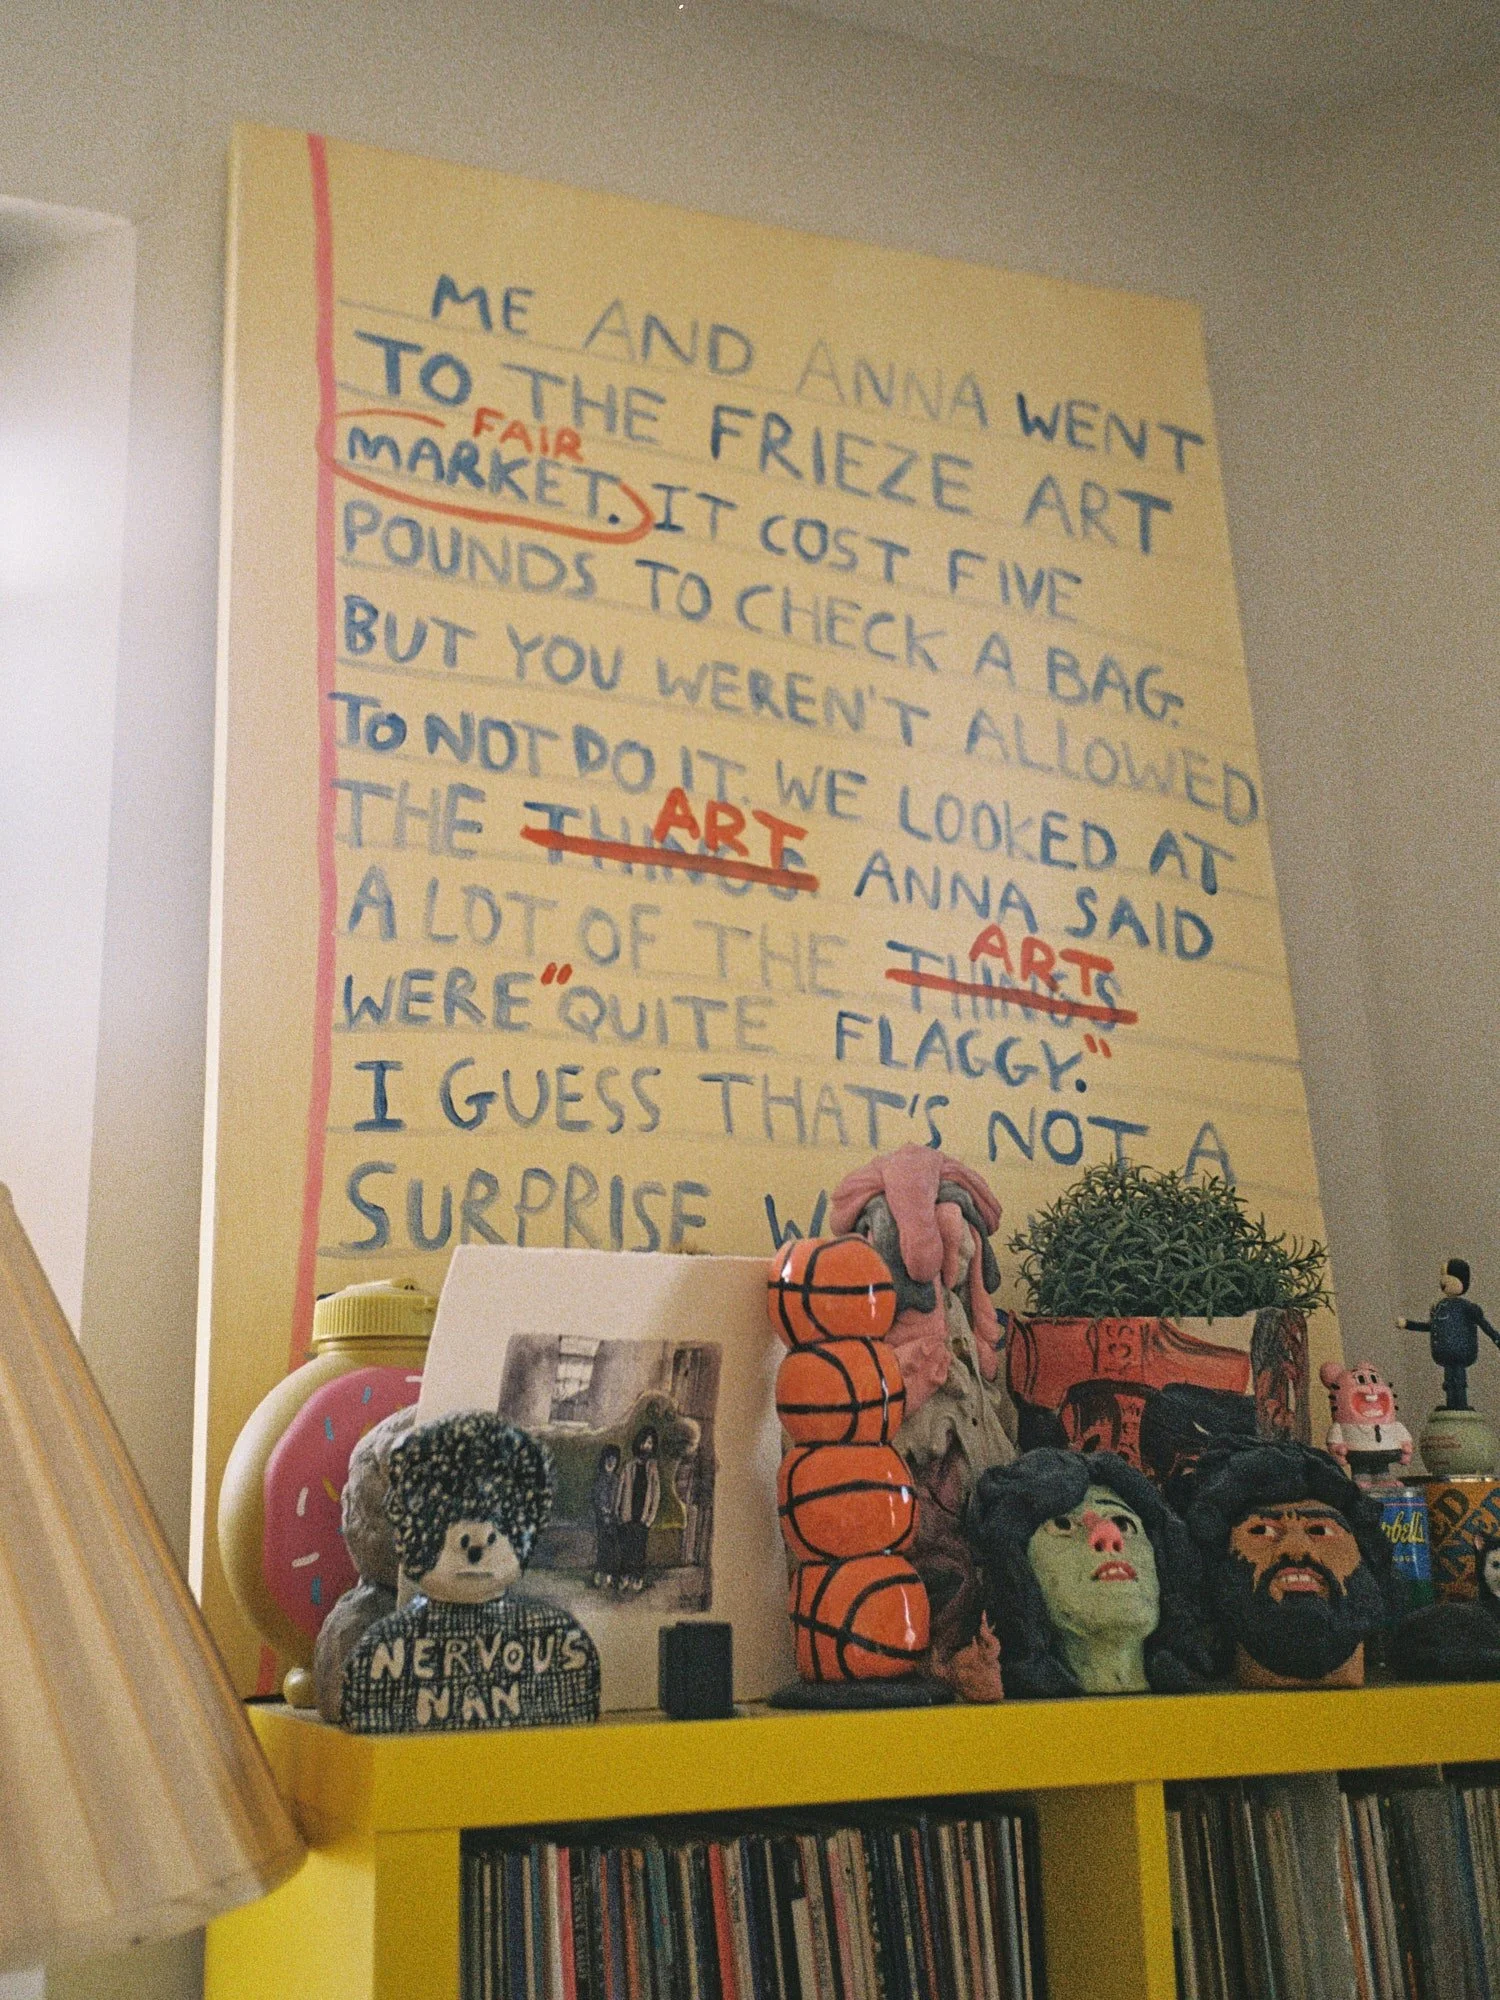 ME AND ANNA WENT
TO THE FRIEZE ART
FAIR
MARKET. IT COST FIVE
POUNDS TO CHECK A BAG.
BUT YOU WEREN'T ALLOWED
TO NOT DO IT. WE LOOKED AT
ART
THE THINGS. ANNA SAID
ART
A LOT OF THE THINGS
WERE "QUITE FLAGGY."
I GUESS THAT'S NOT A
SURPRISE
NERVOUS
MAN